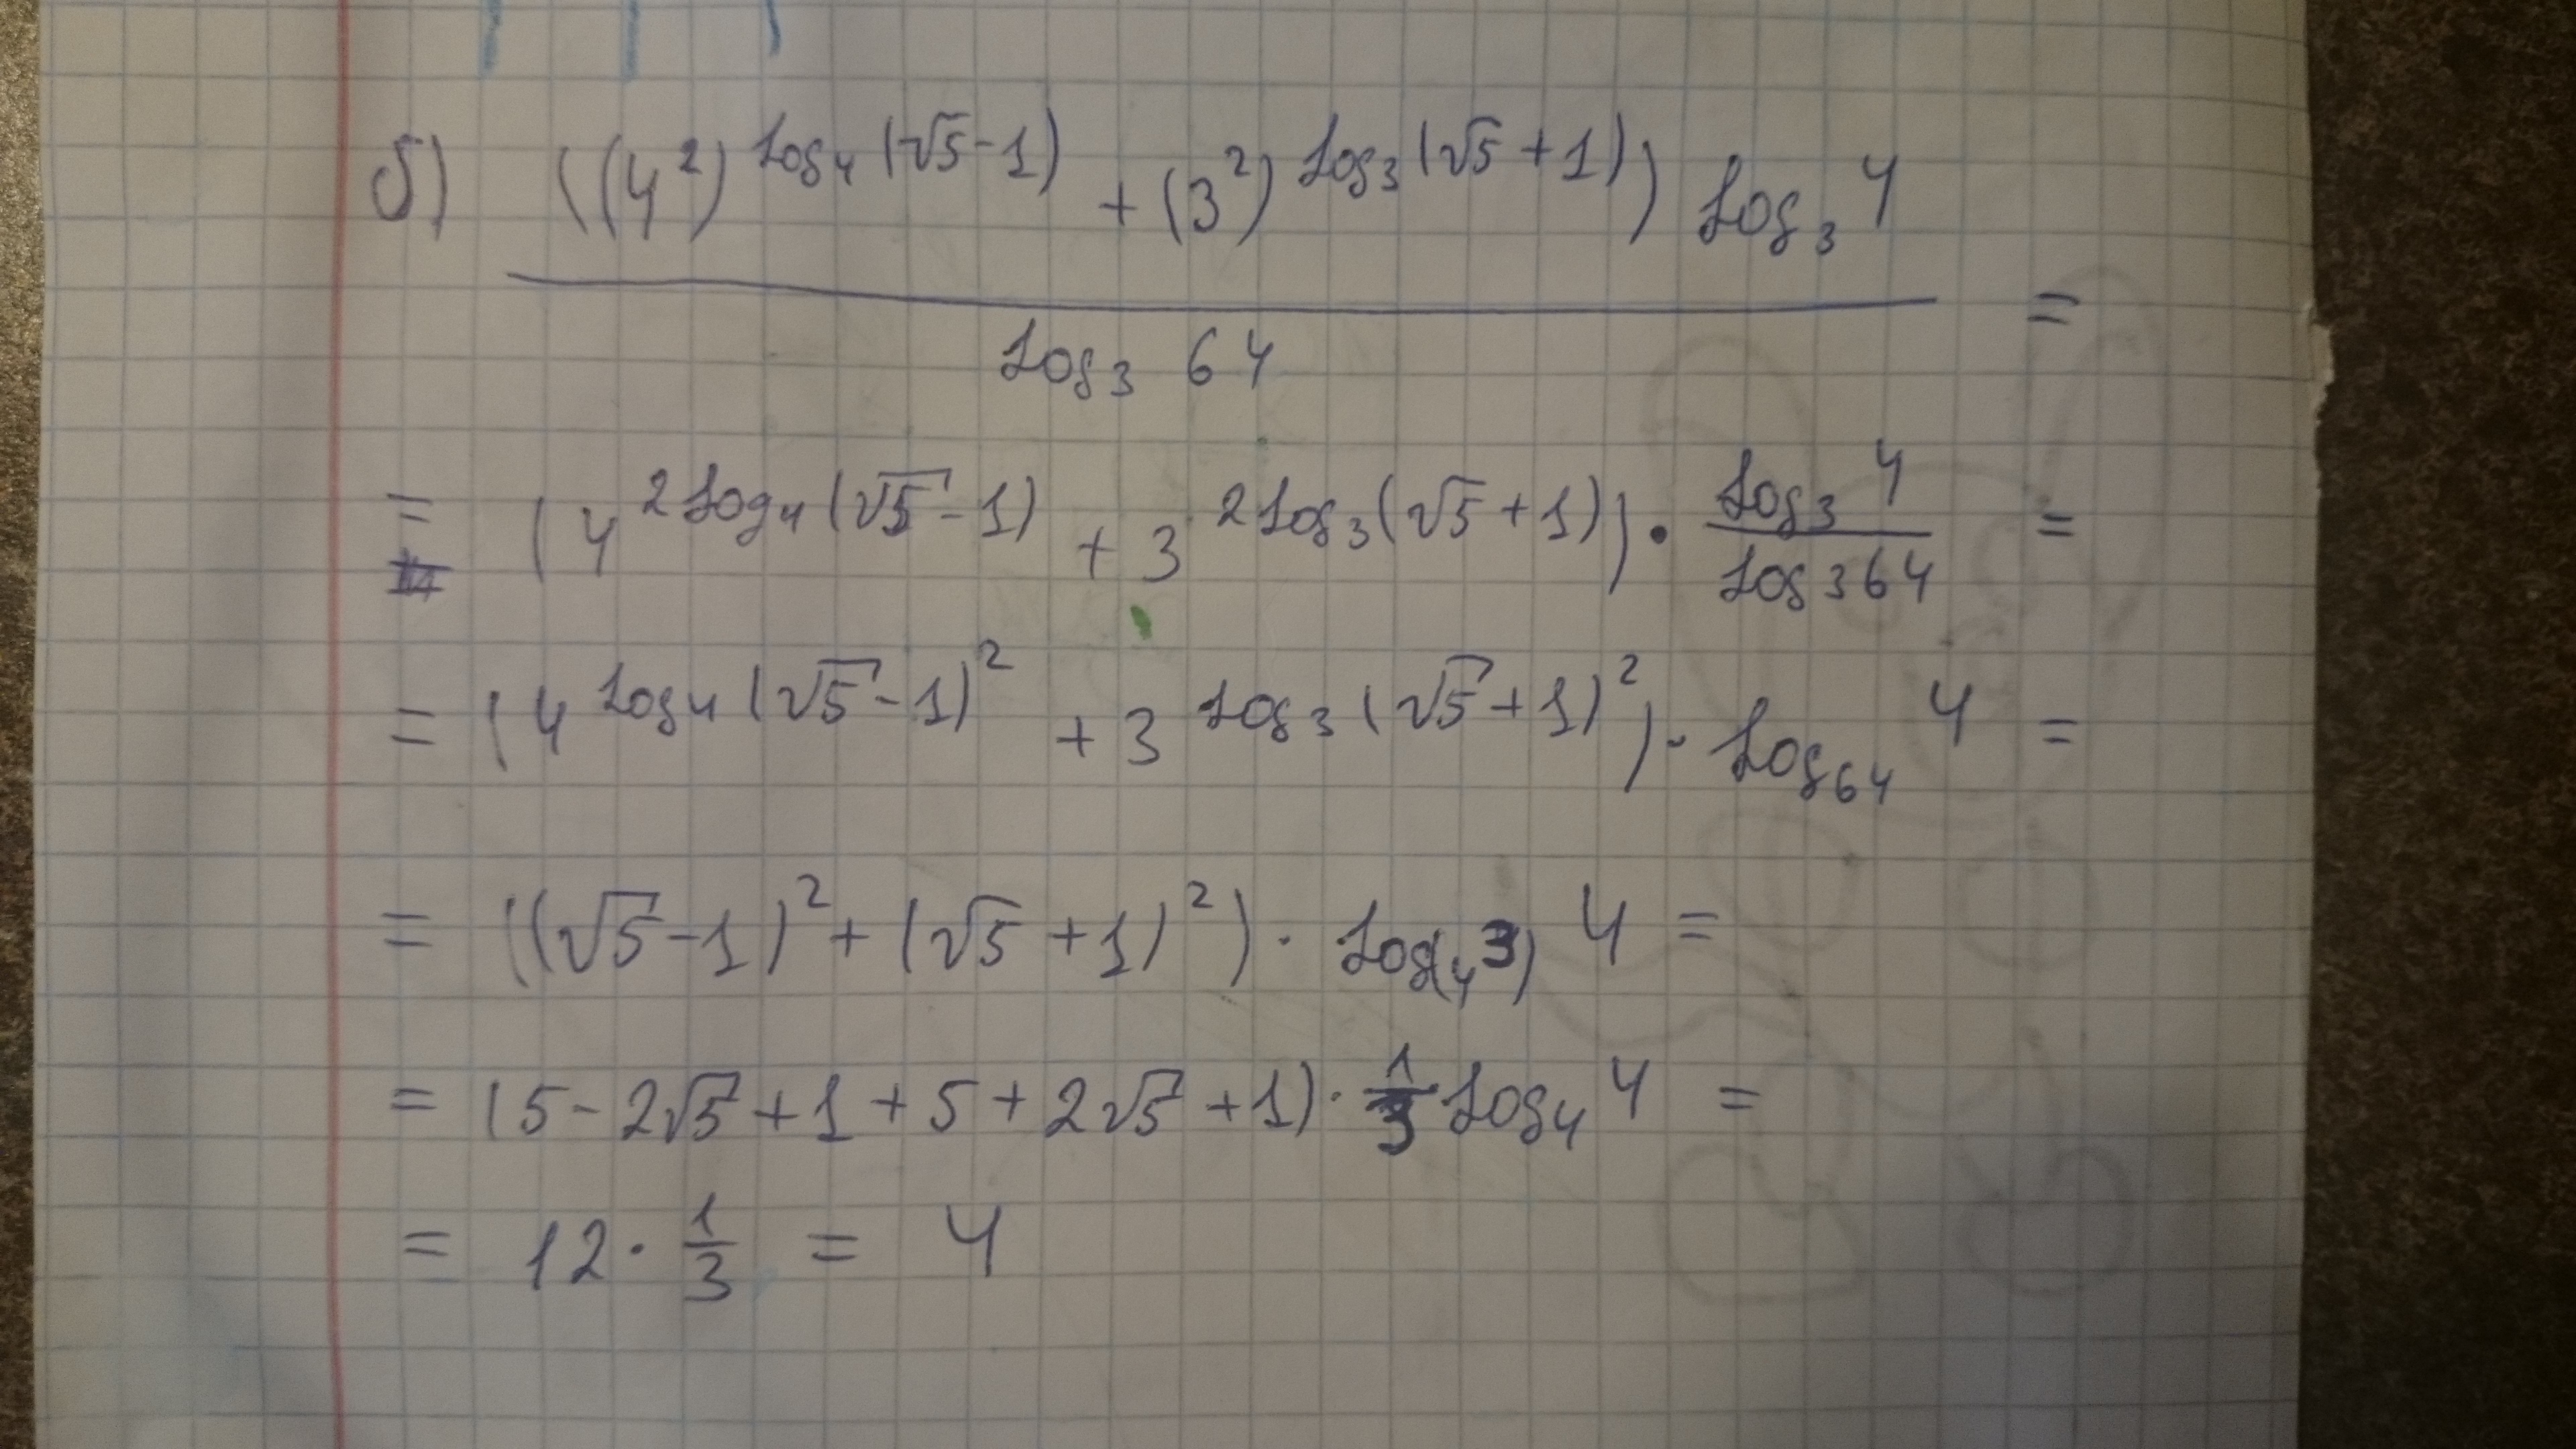 б) ((4²)^{log₄(√5-1)} + (3²)^{log₃(√5+1)}) log₃ 4 =
log₃ 64
= (4^{2log₄(√5-1)} + 3^{2log₃(√5+1)}) · \frac{log₃ 4}{log₃ 64} =
= (4^{log₄(√5-1)²} + 3^{log₃(√5+1)²}) · log₆₄ 4 =
= ((√5-1)² + (√5+1)²) · log_{(4³)} 4 =
= (5-2√5+1+5+2√5+1) · \frac{1}{3} log₄ 4 =
= 12 · \frac{1}{3} = 4